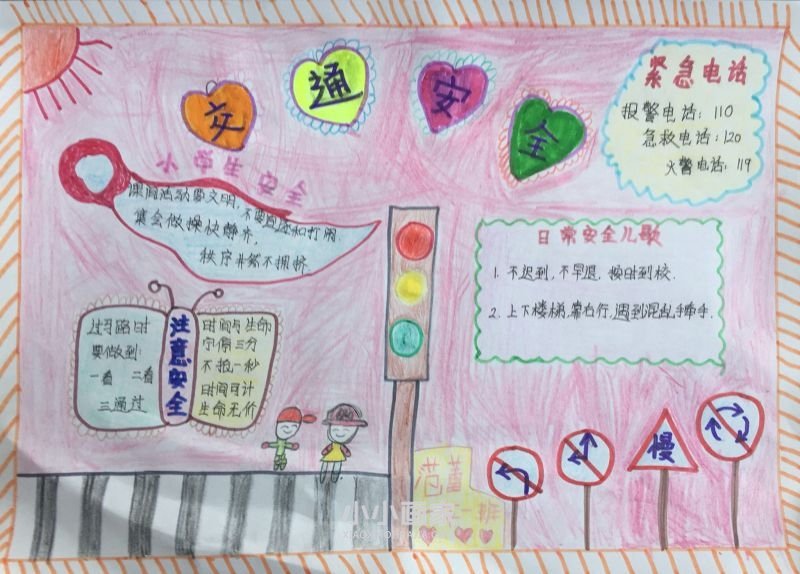 交通安全
紧急电话
报警电话：110
急救电话：120
火警电话：119
小学生安全
课间活动要文明，不要追逐和打闹.
集会做操快静齐，
秩序井然不拥挤.
日常安全儿歌
1. 不迟到，不早退，按时到校.
2. 上下楼梯，靠右行，遇到混乱手牵手.
过马路时
要做到：
一看 二看
三通过
注意安全
时间与生命
宁停三分
不抢一秒
时间可计
生命无价
慢
一班
小小画家